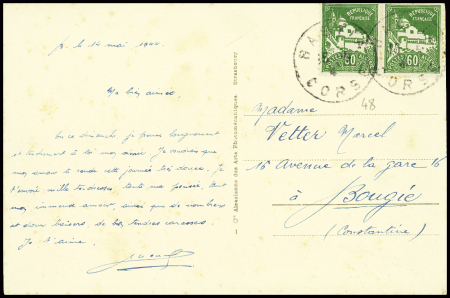 le 14 mai 1944.
Ma bien aimée
En ce dimanche je pense longuement
et tendrement à toi mon aimée. Je voudrais que
mon amour te rende cette journée très douce. Je
t'envoie mille tendresses, toute ma pensée, tout
mon immense amour, ainsi que de nombreux
et doux baisers, de très tendres caresses.
Je t'aime.
— Cie Alsacienne des Arts Photomécaniques Strasbourg
REPUBLIQUE FRANÇAISE
60
REPUBLIQUE FRANÇAISE
60
CORSE
48
Madame
Vetter Marcel
16 Avenue de la gare 16
à Bougie
(Constantine)